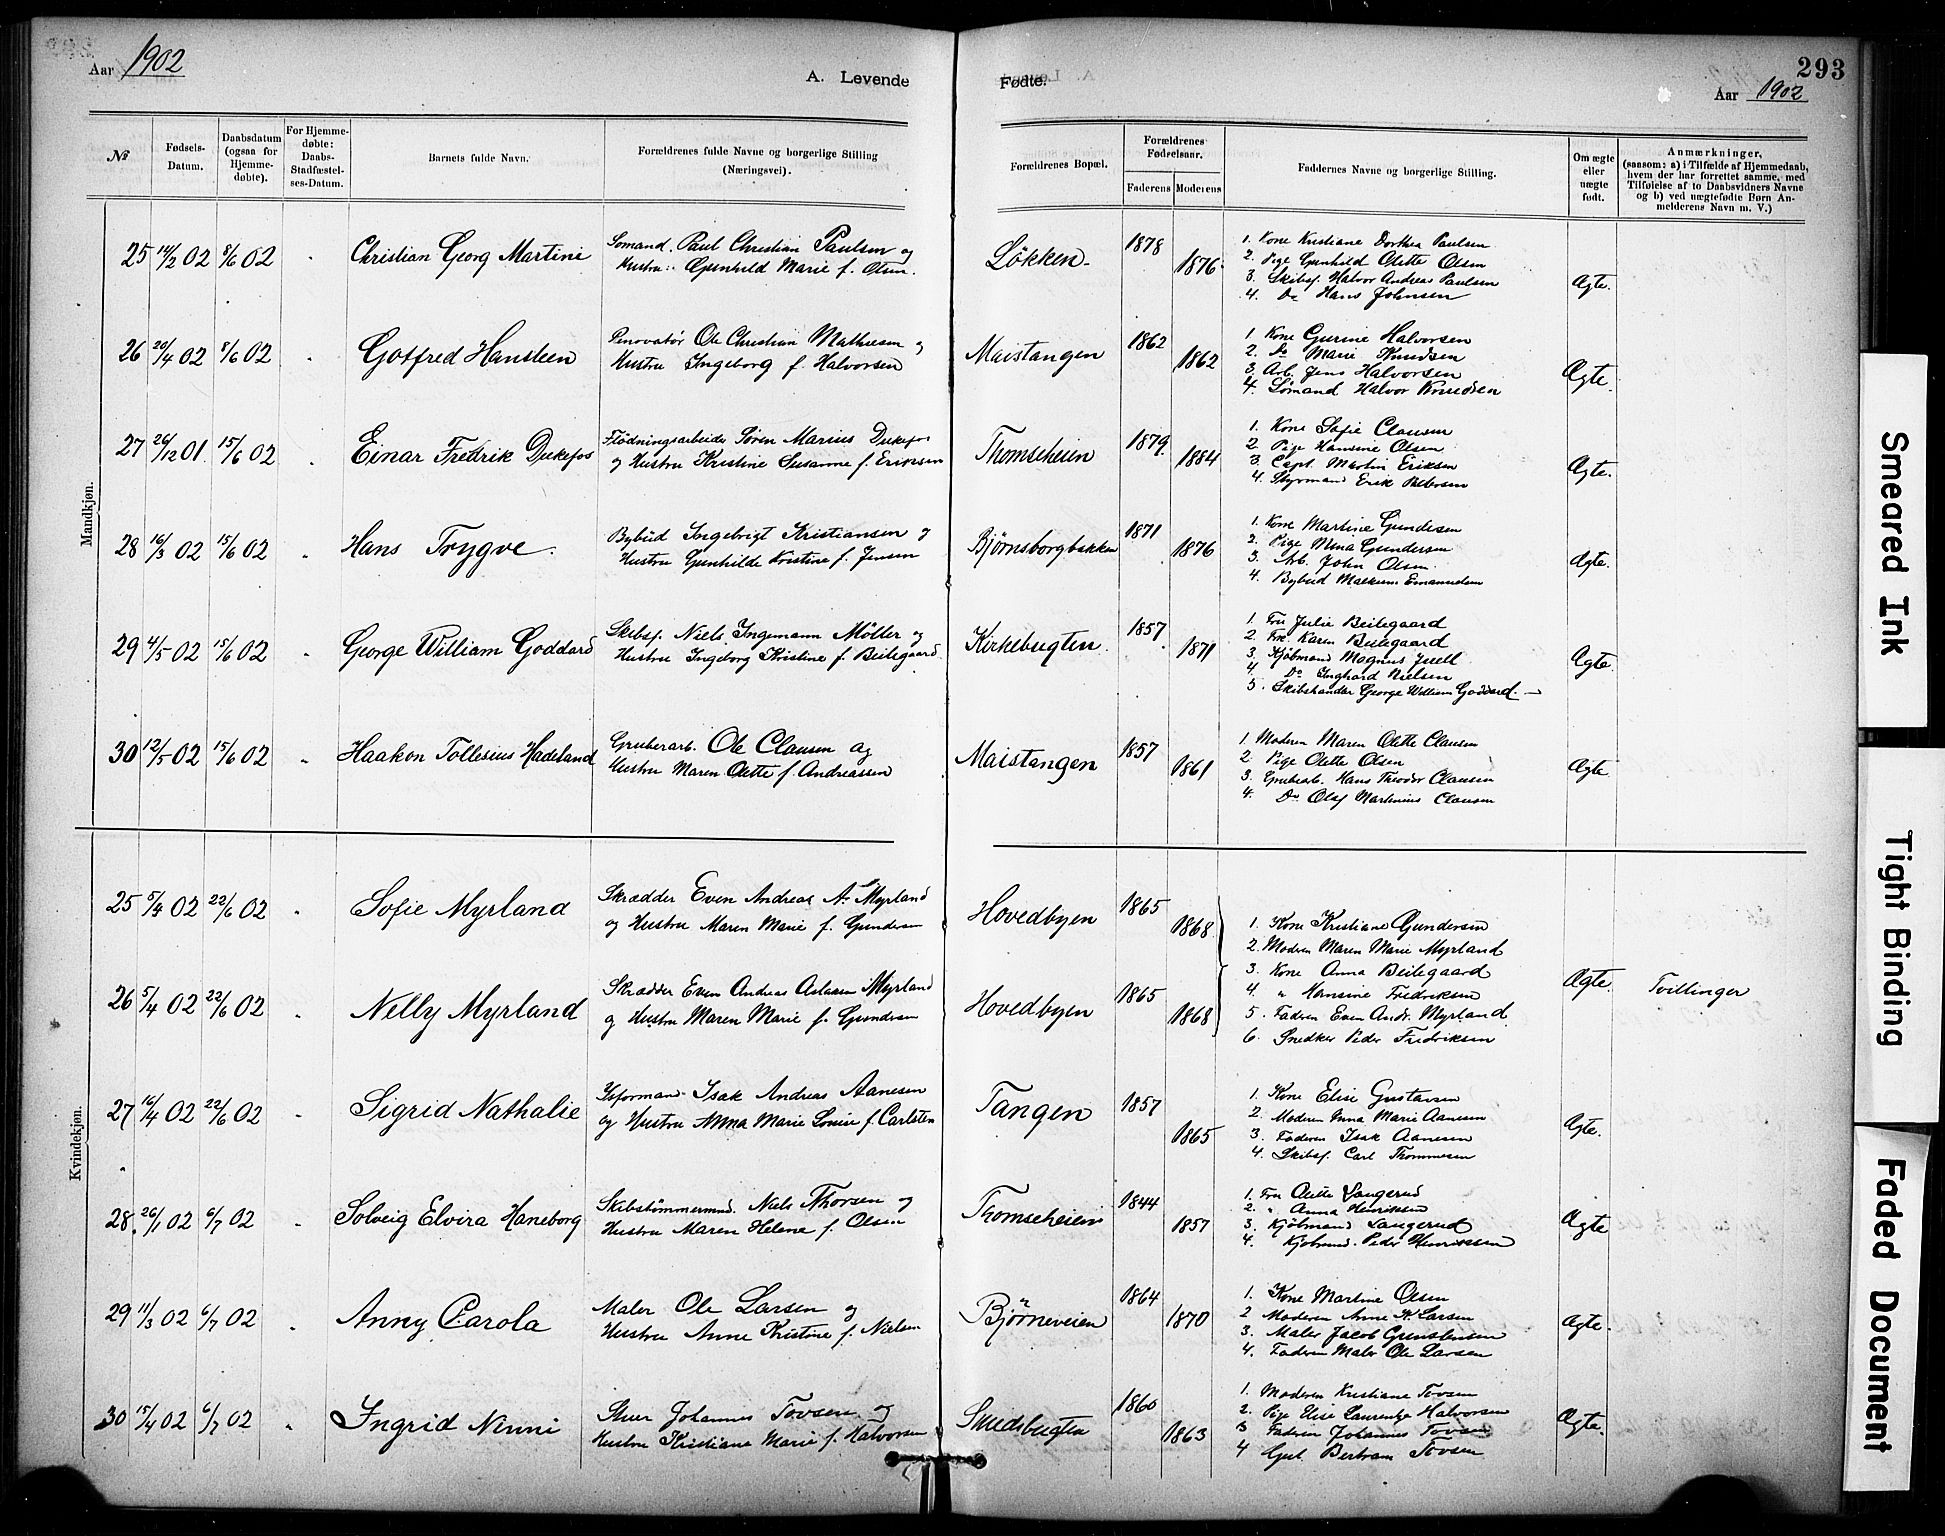 Aar 1902
A. Levende
Fødte.
293
Aar 1902
№
Fødsels-Datum.
Daabsdatum (ogsaa for Hjemme-døbte).
For Hjemme-døbte: Daabs-Stadfæstel-ses-Datum.
Barnets fulde Navn.
Forældrenes fulde Navne og borgerlige Stilling (Næringsvei).
Forældrenes Bopæl.
Forældrenes Fødselsaar.
Faderens Moderens
Faddernes Navne og borgerlige Stilling.
Om ægte eller uægte født.
Anmærkninger,
(saasom: a) i Tilfælde af Hjemmedaab,
hvem der har forrettet samme, med
Tilføielse af to Daabsvidners Navne
og b) ved uægtefødte Børn An-
melderens Navn m. V.)
Mandkjøn.
25 14/2 02 8/6 02 Christian Georg Martini
Sømand. Paul Christian Paulsen og
Hustru: Gunhild Marie f. Olsen.
Løkken 1878 1876
1. Kone Kristiane Dorthea Paulsen
2. Pige Gunhild Olette Olsen
3. Skibsf. Halvor Andreas Paulsen
4. Do Hans Johnsen
Ægte.
26 20/4 02 8/6 02 Gotfred Hansteen
Renovatør Ole Christian Mathiesen og
Hustru Ingeborg f. Halvorsen
Maistangen 1862 1862
1. Kone Gurine Halvorsen
2. Do Marie Knudsen
3. Arb. Jens Halvorsen
4. Sømand Halvor Knudsen
Ægte.
27 26/12 01 15/6 02 Einar Fredrik Djukefos
Flødningsarbeider Søren Marius Djukefos
og Hustru Kristine Susanne f. Eriksen
Thomseheien 1879 1884
1. Kone Sofie Clausen
2. Pige Hansine Olsen
3. Capt. Martin Eriksen
4. Styrmand Erik Pettersen
Ægte.
28 16/3 02 15/6 02 Hans Trygve.
Bybud Ingebrigt Kristiansen og
Hustru Gunhilde Kristine f. Jensen
Bjørnsborgbakken 1871 1876
1. Kone Martine Gundersen
2. Pige Mina Gundersen
3. Arb. John Olsen
4. Bybud Markus Emanuelsen
Ægte.
29 4/5 02 15/6 02 George William Goddard
Skibsf. Niels Ingemann Møller og
Hustru Ingeborg Kristine f. Beilegaard.
Kirkebugten. 1857 1871
1. Fru Julie Beilegaard
2. Frk. Karen Beilegaard
3. Kjøbmand Magnus Juell
4. Do Inghard Nielsen
5. Skibshandler George William Goddard.
Ægte
30 12/5 02 15/6 02 Haakon Tollesius Hadeland
Grubearb. Ole Clausen og
Hustru Maren Olette f. Andreassen
Maistangen 1857 1861
1. Moderen Maren Olette Clausen
2. Pige Olette Olsen
3. Grubearb. Hans Theodor Clausen
4. Do Olaf Martinius Clausen
Ægte
Kvindekjøn.
25 5/4 02 22/6 02 Sofie Myrland
Skrædder Even Andreas A. Myrland
og Hustru Maren Marie f. Gundersen
Hovedbyen 1865 1868
1. Kone Kristiane Gundersen
2. Moderen Maren Marie Myrland
3. Kone Anna Beilegaard
4. " Hansine Fredriksen
5. Faderen Even Andr. Myrland
6. Snedker Peder Fredriksen
26 5/4 02 22/6 02 Nelly Myrland
Skrædder Even Andreas Aslaksen Myrland
og Hustru Maren Marie f. Gundersen
Hovedbyen 1865 1868
Ægte. Tvillinger
27 16/4 02 22/6 02 Sigrid Nathalie
Isak Andreas Aanesen
og Hustru Anna Marie Louise f. Carlsten
Tangen 1857 1865
1. Kone Elise Gustavsen
2. Moderen Anna Marie Aanesen
3. Faderen Isak Aanesen
4. Skibsf. Carl Thommesen
Ægte.
28. 26/1 02 6/7 02 Solveig Elvira Haneborg
Skibstømmermand. Niels Thorsen og
Hustru Maren Helene f. Olsen
Thomseheien 1844 1857
1. Fru Olette Langerud
2. " Anna Henriksen
3. Kjøbmand Langerud
4. Kjøbmand. Peder Henriksen
Ægte
29 11/3 02 6/7 02 Anny Carola
Maler Ole Larsen og
Hustru Anne Kristine f. Nielsen
Bjørneveien 1864 1870
1. Kone Martine Olsen
2 Moderen Anne K. Larsen
3. Maler Jacob Gunstensen
4. Faderen Maler Ole Larsen
Ægte.
30 15/4 02 6/7 02 Ingrid Nenni
Johannes Tovsen og
Hustru Kristiane Marie f. Halvorsen
Smedsbugten 1860 1863
1. Moderen Kristiane Tovsen
2. Pige Elise Laurentze Halvorsen
3 Faderen Johannes Tovsen
4 Bertram Tovsen
Ægte.
Smeared Ink
Tight Binding
Faded Document